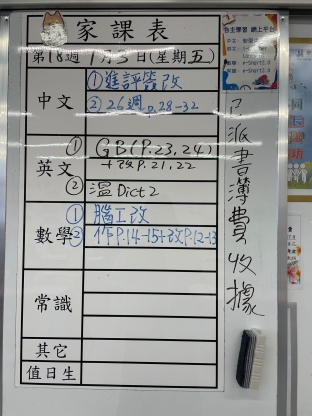 家課表
第18週 1月3日(星期五)
中文
①進評簽改
②26週 P.28-32
英文
① GB(P.23,24)
+改P.21,22
② 溫Dict 2
數學
① 腦工改
② 作P.14-15+改P.12-13
常識
其它
值日生
已派書簿費收據
自主學習 網上平台